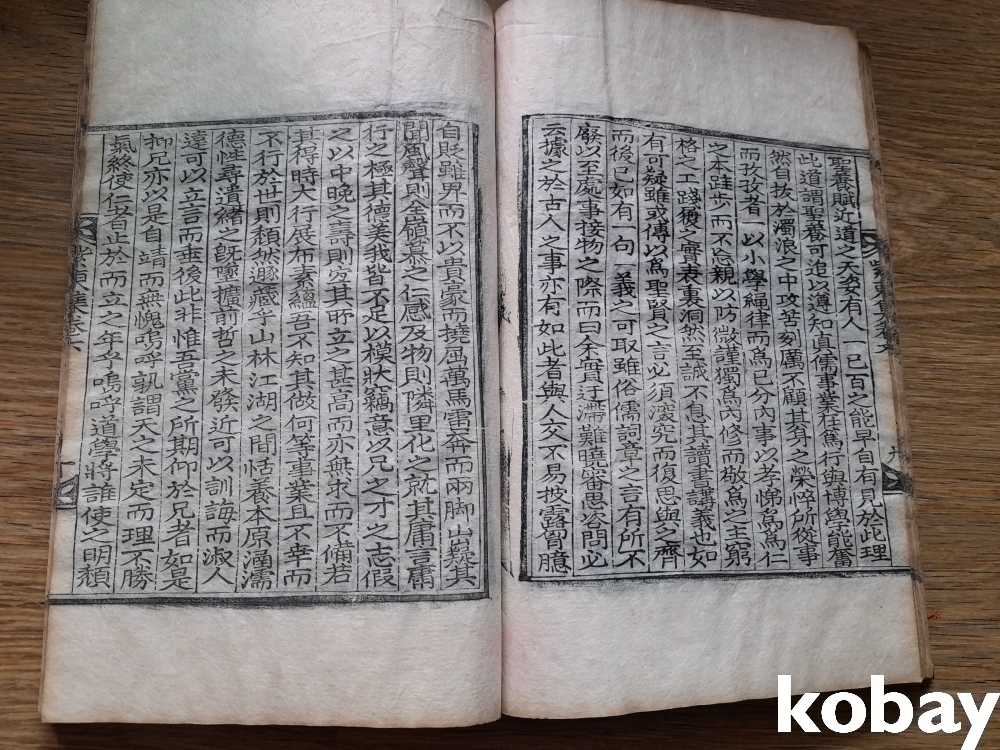 聖養賦近道之天姿有人一己百之能早自有見於此理
此道謂聖養可追以溥知眞儒事業在篤行與博學能奮
然自拔於濁浪之中攻苦刻厲不顧其身之榮悴所從事
而孜孜者一以小學編律而爲己分內事以孝悌爲爲仁
之本跬步而不忘親以防微謹獨爲內修而敬爲之主窮
格之工踐履之實表裏洞然至誠不息其讀書講義也如
有可疑雖或傳以爲聖賢之言必須深究而復思與之齊
而後已如有一句一義之可取雖俗儒詞章之言有所不
廢以至處事接物之際而曰余實迂滯難曉審思咨問必
云據之於古人之事亦有如此者與人交不易披露胷臆
自貶雖男而不以貴豪而撓屈萬馬雷奔而兩脚山嶷其
聞風聲則全嶺慕之仁感及物則隣里化之就其庸言庸
行之極其德美我皆不足以模狀竊意以兄之才之志假
之以中晚之壽則究其所立之甚高而亦無求而不備若
其得時大行展布素蘊吾不知其做何等事業且不幸而
不行於世則頹然遯藏乎山林江湖之間恬養本原涵濡
德性尋遺緖之旣墜擴前哲之未發近可以訓誨而淑人
遠可以立言而垂後此非惟吾黨之所期仰於兄者如是
抑兄亦以是自靖而無愧嗚呼孰謂天之未定而理不勝
氣終使仁者止於而立之年乎嗚呼道學將誰使之明頹
kobay